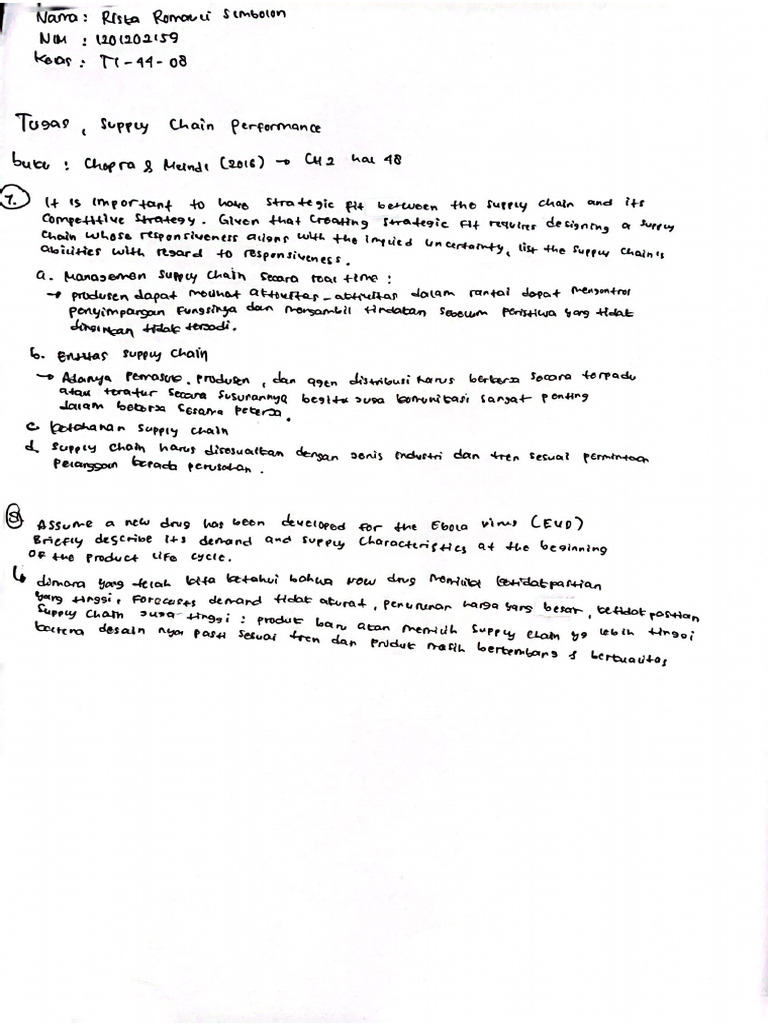 Nama : Rista Romauli Simbolon
NIM : 1201202159
Kelas : TI-44-08
Tugas, Supply Chain Performance
buku : Chopra & Meindl (2016) → CH 2 hal 48
7. It is important to have strategic fit between the supply chain and its
competitive strategy. Given that creating strategic fit requires designing a supply
chain whose responsiveness aligns with the implied uncertainty, list the supply chain's
abilities with regard to responsiveness.
a. Manajemen supply chain secara real time :
→ produsen dapat melihat aktivitas-aktivitas dalam rantai dapat mengontrol
penyimpangan fungsinya dan mengambil tindakan sebelum peristiwa yang tidak
diinginkan tidak terjadi.
b. Entitas supply chain
→ Adanya pemasok, produsen, dan agen distribusi harus bekerja secara terpadu
atau teratur secara susunannya begitu juga komunikasi sangat penting
dalam bekerja sesama pekerja.
c. ketahanan supply chain
d. supply chain harus disesuaikan dengan jenis industri dan tren sesuai permintaan
pelanggan kepada perusahan.
8. Assume a new drug has been developed for the Ebola virus (EVD)
Briefly describe its demand and supply characteristics at the beginning
of the product life cycle.
↳ dimana yang telah kita ketahui bahwa new drug memiliki ketidakpastian
yang tinggi, Forecasts demand tidak akurat, penurunan harga yang besar, ketidakpastian
supply chain juga tinggi : produk baru akan memilih supply chain yg lebih tinggi
karena desain nya pasti sesuai tren dan produk masih berkembang & berkualitas